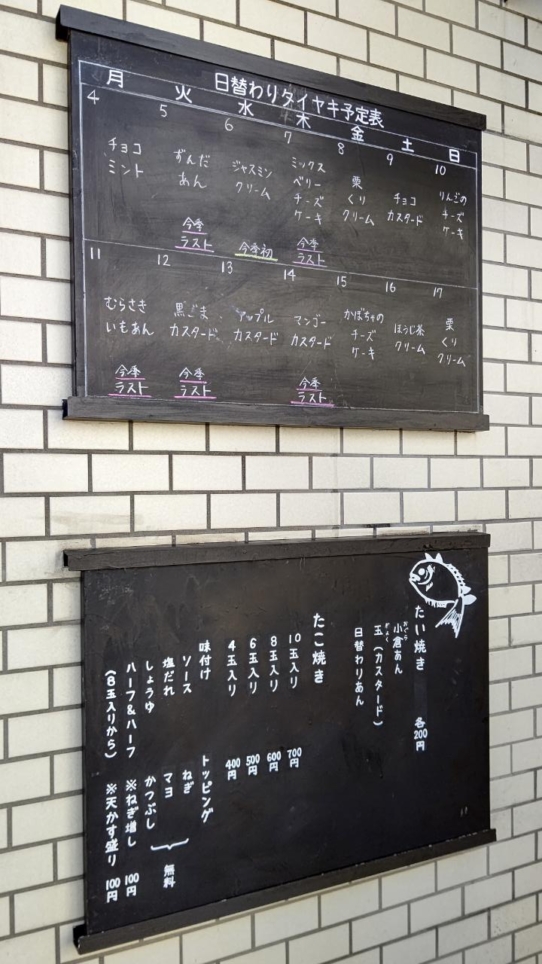 日替わりタイヤキ予定表
月 火 水 木 金 土 日
4 5 6 7 8 9 10
チョコ
ミント
ずんだ
あん
今季
ラスト
ジャスミン
クリーム
今季初
ミックス
ベリー
チーズ
ケーキ
今季
ラスト
栗
くり
クリーム
チョコ
カスタード
りんごの
チーズ
ケーキ
11 12 13 14 15 16 17
むらさき
いもあん
今季
ラスト
黒ごま
カスタード
今季
ラスト
アップル
カスタード
マンゴー
カスタード
今季
ラスト
かぼちゃの
チーズ
ケーキ
ほうじ茶
クリーム
栗
くり
クリーム
たい焼き 各200円
小倉あん
おぐら
玉(カスタード)
ぎょく
日替わりあん
たこ焼き
10玉入り 700円
8玉入り 600円
6玉入り 500円
4玉入り 400円
味付け
ソース
塩だれ
しょうゆ
ハーフ&ハーフ
(8玉入りから)
トッピング
ねぎ
マヨ
かつぶし
無料
※ねぎ増し 100円
※天かす盛り 100円